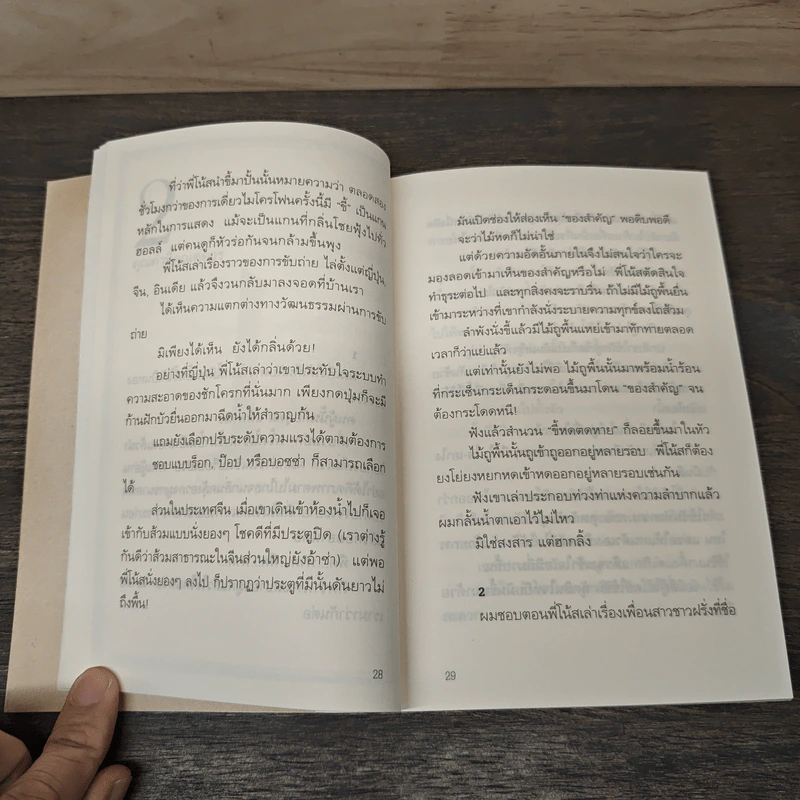 ที่ว่าพี่โน้สนำขี้มาปั้นนั้นหมายความว่า ตลอดสอง
ชั่วโมงกว่าของการเดี่ยวไมโครโฟนครั้งนี้มี "ขี้" เป็นแกน
หลักในการแสดง แม้จะเป็นแกนที่กลิ่นโชยฟุ้งไปทั่ว
ฮอลล์ แต่คนดูก็หัวร่อกันจนกล้ามขึ้นพุง
พี่โน้สเล่าเรื่องราวของการขับถ่าย ไล่ตั้งแต่ญี่ปุ่น,
จีน, อินเดีย แล้วจึงวนกลับมาลงจอดที่บ้านเรา
ได้เห็นความแตกต่างทางวัฒนธรรมผ่านการขับ
ถ่าย
มิเพียงได้เห็น ยังได้กลิ่นด้วย!
อย่างที่ญี่ปุ่น พี่โน้สเล่าว่าเขาประทับใจระบบทำ
ความสะอาดของชักโครกที่นั่นมาก เพียงกดปุ่มก็จะมี
ก้านฝักบัวยื่นออกมาฉีดน้ำให้สำราญก้น
แถมยังเลือกปรับระดับความแรงได้ตามต้องการ
ชอบแบบร็อก, ป๊อป หรือบอซซ่า ก็สามารถเลือก
ได้
ส่วนในประเทศจีน เมื่อเขาเดินเข้าห้องน้ำไปก็เจอ
เข้ากับส้วมแบบนั่งยองๆ โชคดีที่มีประตูปิด (เราต่างรู้
กันดีว่าส้วมสาธารณะในจีนส่วนใหญ่ยังอ้าซ่า) แต่พอ
พี่โน้สนั่งยองๆ ลงไป ก็ปรากฏว่าประตูที่มีนั้นดันยาวไม่
ถึงพื้น!
28
มันเปิดช่องให้ส่องเห็น "ของสำคัญ" พอดิบพอดี
จะว่าไม้หดก็ไม่น่าใช่
แต่ด้วยความอัดอั้นภายในจึงไม่สนใจว่าใครจะ
มองลอดเข้ามาเห็นของสำคัญหรือไม่ พี่โน้สตัดสินใจ
ทำธุระต่อไป และทุกสิ่งคงจะราบรื่น ถ้าไม่มีไม้ถูพื้นยื่น
เข้ามาระหว่างที่เขากำลังนั่งระบายความทุกข์ลงโถส้วม
ลำพังนั่งขี้แล้วมีไม้ถูพื้นแหย่เข้ามาทักทายตลอด
เวลาก็ว่าแย่แล้ว
แต่เท่านั้นยังไม่พอ ไม้ถูพื้นนั้นมาพร้อมน้ำร้อน
ที่กระเซ็นกระเด็นกระดอนขึ้นมาโดน "ของสำคัญ" จน
ต้องกระโดดหนี!
ฟังแล้วสำนวน "ขี้หดตดหาย" ก็ลอยขึ้นมาในหัว
ไม้ถูพื้นนั้นถูเข้าถูออกอยู่หลายรอบ พี่โน้สก็ต้อง
ยงโย่ยงหยกหดเข้าหดออกอยู่หลายรอบเช่นกัน
ฟังเขาเล่าประกอบท่วงท่าแห่งความลำบากแล้ว
ผมกลั้นน้ำตาเอาไว้ไม่ไหว
มิใช่สงสาร แต่ฮากลิ้ง
2
ผมชอบตอนพี่โน้สเล่าเรื่องเพื่อนสาวชาวฝรั่งที่ชื่อ
29